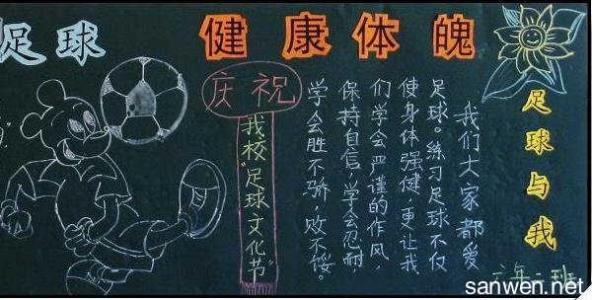 足球
健康体魄
庆祝
我校“足球文化节”
我们大家都爱
足球。练习足球不仅
使身体强健,更让我
们学会严谨的作风,
保持自信,学会忍耐,
学会胜不骄,败不馁。
足球与我
六年二班
sanwen.net